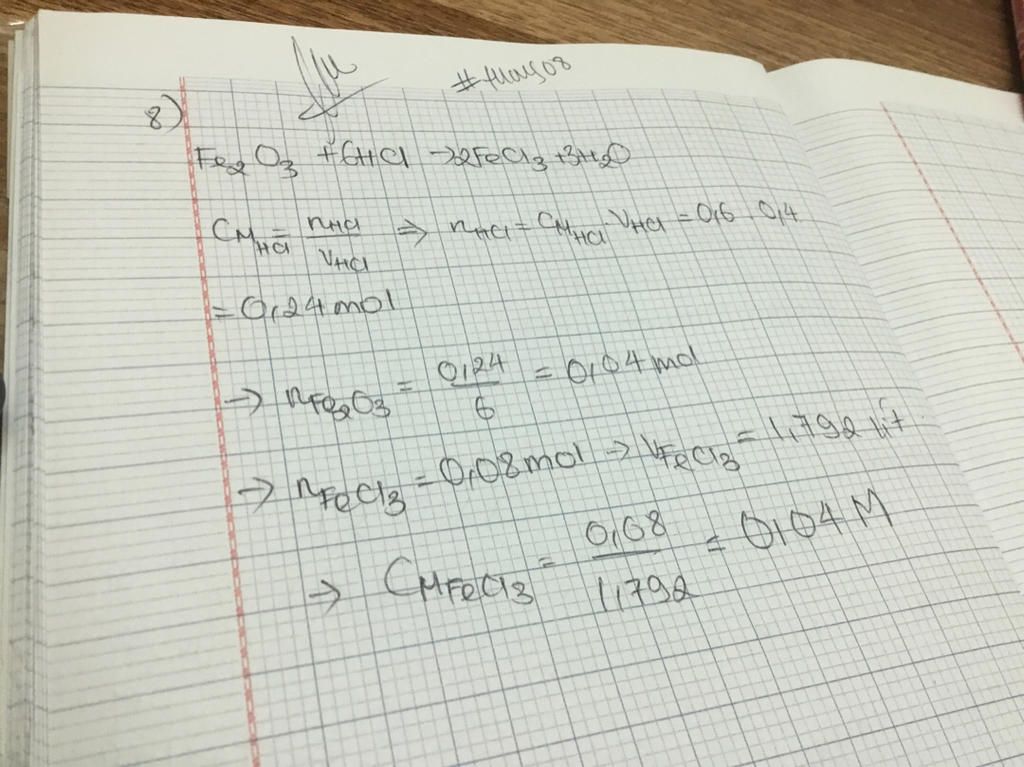 8)
Fe2O3 + 6HCl → 2FeCl3 + 3H2O
CMHCl = nHCl / VHCl ⇒ nHCl = CMHCl . VHCl = 0,6 . 0,4
= 0,24 mol
→ nFe2O3 = 0,24 / 6 = 0,04 mol
→ nFeCl3 = 0,08 mol → VFeCl3 = 1,792 lít
→ CMFeCl3 = 0,08 / 1,792 = 0,04 M